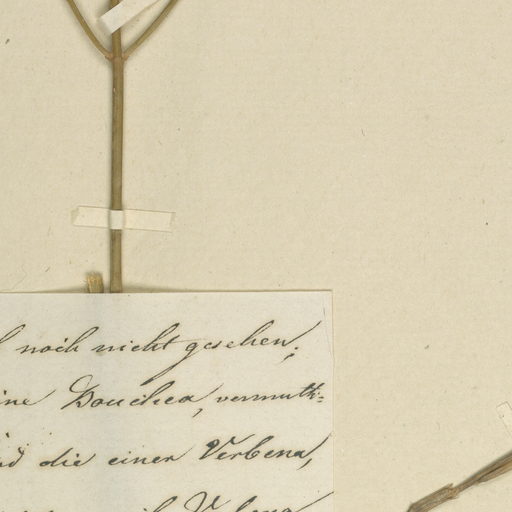 noch nicht gesehen;
ine Bouchea, vermuth=
nd die einer Verbena,